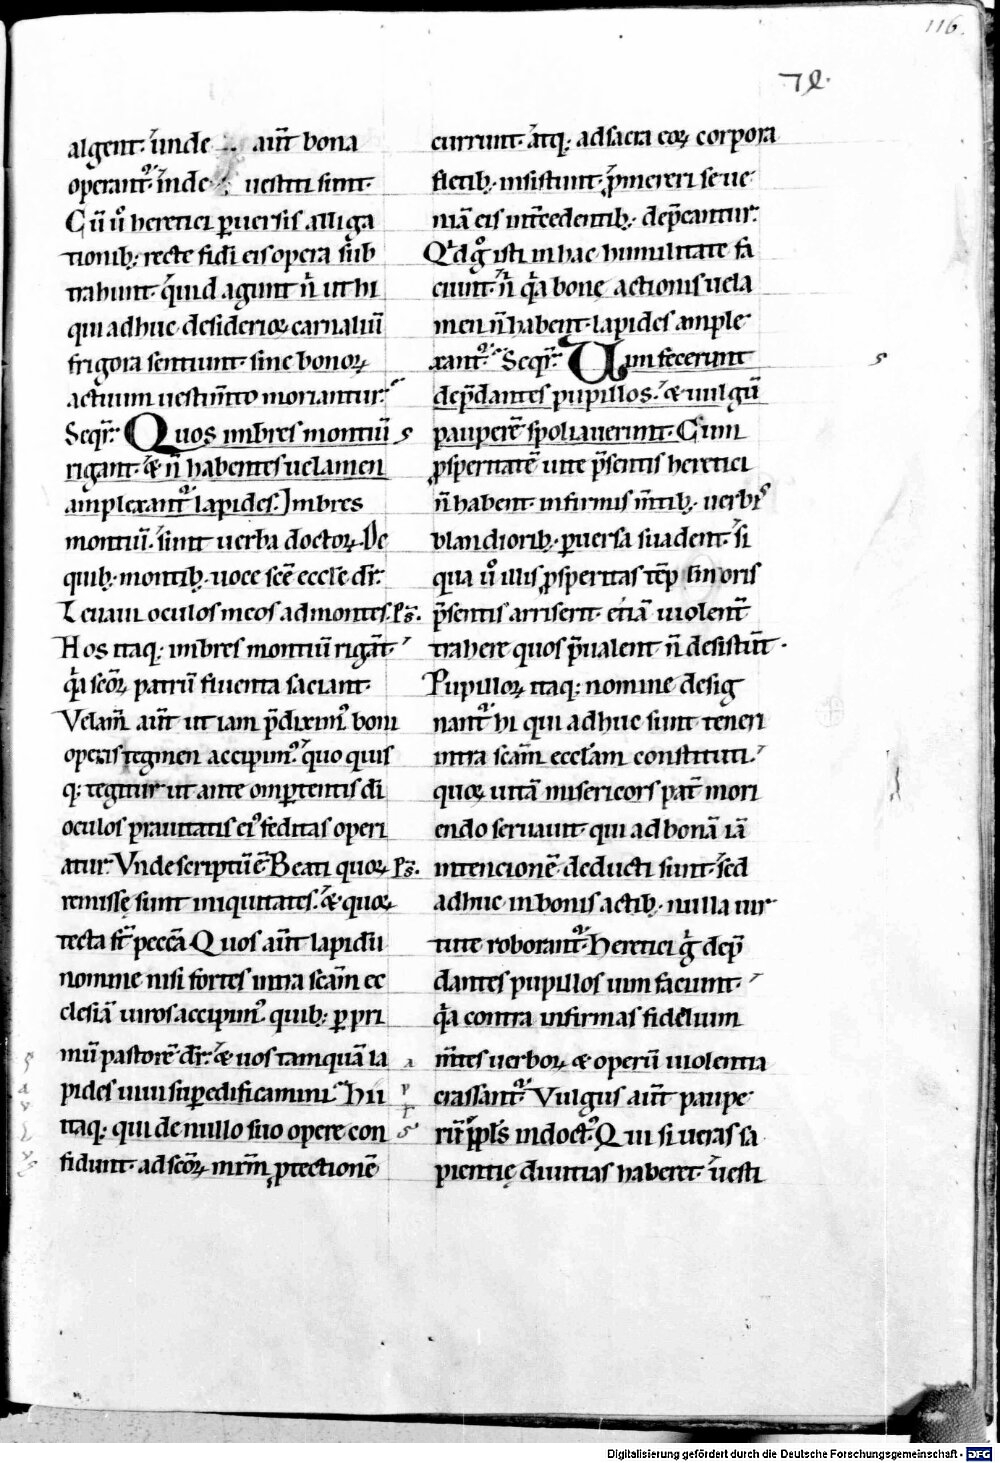 116.
algent. inde aut̄ bona
operant᷒. inde uestiti sunt.
Cū ů heretici ꝑuersis alliga
tionib; recte fidei eis opera sub
trahunt. qͥd agunt nͥ ut hi
qui adhuc desiderioꝝ carnaliū
frigora sentiunt. sine bonoꝝ
actuum uestim̄to moriantur.
Seqr̄. Quos imbres montiū
rigant. & n̄ habentes uelamen
amplexant᷒ lapides. Imbres
montiū. sunt uerba doctoꝝ. De
quib; montib; uoce scē eccl̄e dr̄.
Leuaui oculos meos ad montes. Ps̄.
Hos itaq; imbres montiū rigāt.
qͣ scōꝝ patrū fluenta saciant.
Velam̄ aut̄ ut iam p̄dixim᷒ boni
operis tegmen accipim᷒. quo quis
q; tegitur ut ante omp̄tentis dī
oculos prauitatis ei᷒ feditas operi
atur. Vnde scriptū ē. Beati quoꝝ Ps̄.
remissę sunt iniquitates. & quoꝝ
tecta st̄ peccā. Quos aut̄ lapidū
nomine nisi fortes intra scām ec
clesiā uiros accipim᷒. quib; ꝑ pri
mū pastorē dr̄. & uos tamquā la
pides uiui suꝑedificamini. Hii
itaq; qui de nullo suo opere con
fidunt. ad scōꝝ mr̄m ꝓtectionē
currunt. atq; ad sacra eoꝝ corpora
fletib; insistunt. ꝓmereri se ue
niā eis int̄cedentib; dep̄cantur.
Qͥd gͦ isti in hac humilitate fa
ciunt. nͥ qͣ bonę actionis uela
men n̄ habent. lapides ample
xant᷒. Seqr̄. Uim fecerunt
dep̄dantes pupillos. & uulgū
pauperē spoliauerunt. Cum
ꝓsperitatē uite p̄sentis heretici
n̄ habent. infirmis m̄tib; uerbis
blandiorib; ꝑuersa suadent. Si
qua ů illis ꝓsperitas tēporis
p̄sentis arriserit. etiā uiolent̄
trahere quos p̄ualent n̄ desistūt.
Pupilloꝝ itaq; nomine desig
nant᷒ hi qui adhuc sunt teneri
intra scām eccl̄am constituti.
quoꝝ uitā misericors pat̄ mori
endo seruauit. qui ad bonā iā
intencionē deducti sunt. sed
adhuc in bonis actib; nulla uir
tute roborant᷒. Heretici gͦ dep̄
dantes pupillos uim faciunt.
qͣ contra infirmas fidelium
m̄tes uerboꝝ & operū uiolentia
crassant᷒. Vulgus aut̄ paupe
rū ppl̄s indoct᷒. Qui si ueras sa
pientię diuitias haberet. uesti
Digitalisierung gefördert durch die Deutsche Forschungsgemeinschaft - DFG